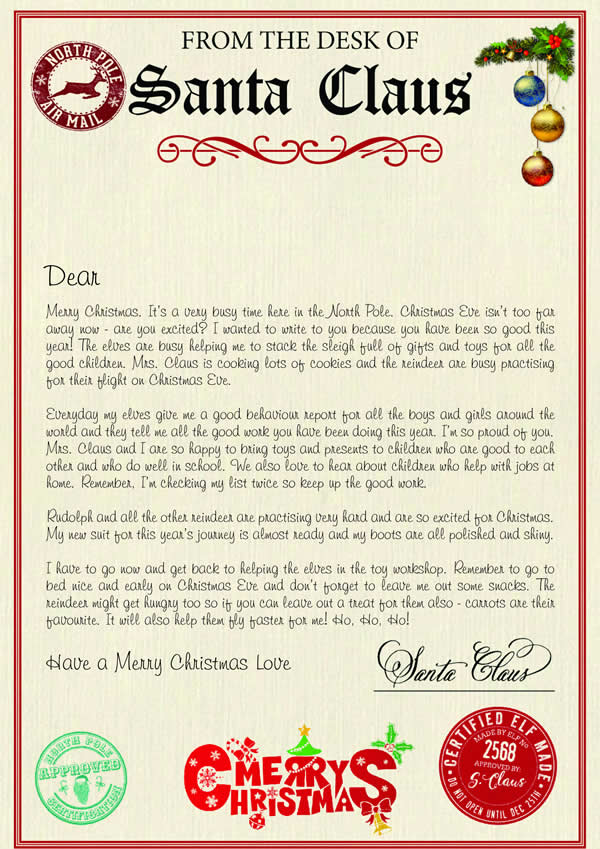 NORTH POLE
AIR MAIL
FROM THE DESK OF
Santa Claus
Dear
Merry Christmas. It's a very busy time here in the North Pole. Christmas Eve isn't too far
away now - are you excited? I wanted to write to you because you have been so good this
year! The elves are busy helping me to stack the sleigh full of gifts and toys for all the
good children. Mrs. Claus is cooking lots of cookies and the reindeer are busy practising
for their flight on Christmas Eve.
Everyday my elves give me a good behaviour report for all the boys and girls around the
world and they tell me all the good work you have been doing this year. I'm so proud of you.
Mrs. Claus and I are so happy to bring toys and presents to children who are good to each
other and who do well in school. We also love to hear about children who help with jobs at
home. Remember, I'm checking my list twice so keep up the good work.
Rudolph and all the other reindeer are practising very hard and are so excited for Christmas.
My new suit for this year's journey is almost ready and my boots are all polished and shiny.
I have to go now and get back to helping the elves in the toy workshop. Remember to go to
bed nice and early on Christmas Eve and don't forget to leave me out some snacks. The
reindeer might get hungry too so if you can leave out a treat for them also - carrots are their
favourite. It will also help them fly faster for me! Ho, Ho, Ho!
Have a Merry Christmas Love
Santa Claus
NORTH POLE
APPROVED
CERTIFICATION
MERRY
CHRISTMAS
CERTIFIED ELF MADE
MADE BY ELF No
2568
APPROVED BY:
S. Claus
DO NOT OPEN UNTIL DEC 25TH